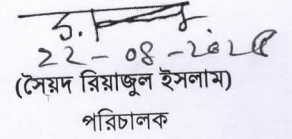 22-08-2024
(সৈয়দ রিয়াজুল ইসলাম)
পরিচালক